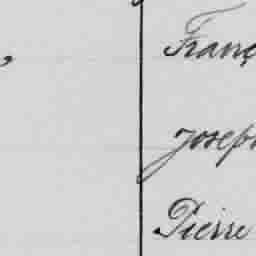 Franç
Joseph
Pierre